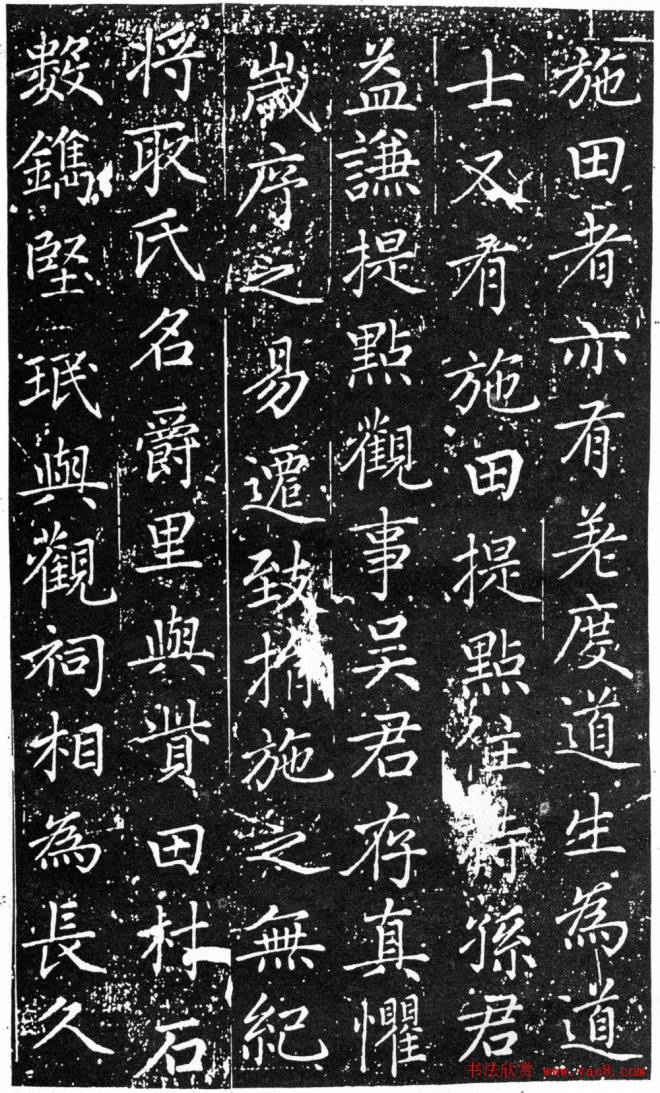 施田者亦有差度道生為道
士又有施田提點住持孫君
益謙提點觀事吳君存真懼
歲序之易遷致捐施之無紀
將取氏名爵里與貲田村石
數鐫堅珉與觀祠相為長久
书法欣赏 www.yac8.com